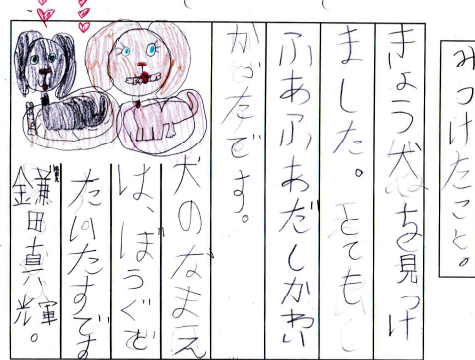 みつけたこと。
きょう犬を見つけ
ました。とても
ふあふあだしかわい
かったです。
犬のなまえ
は、ぼうぐど
たいたすです
鎌田真輝。